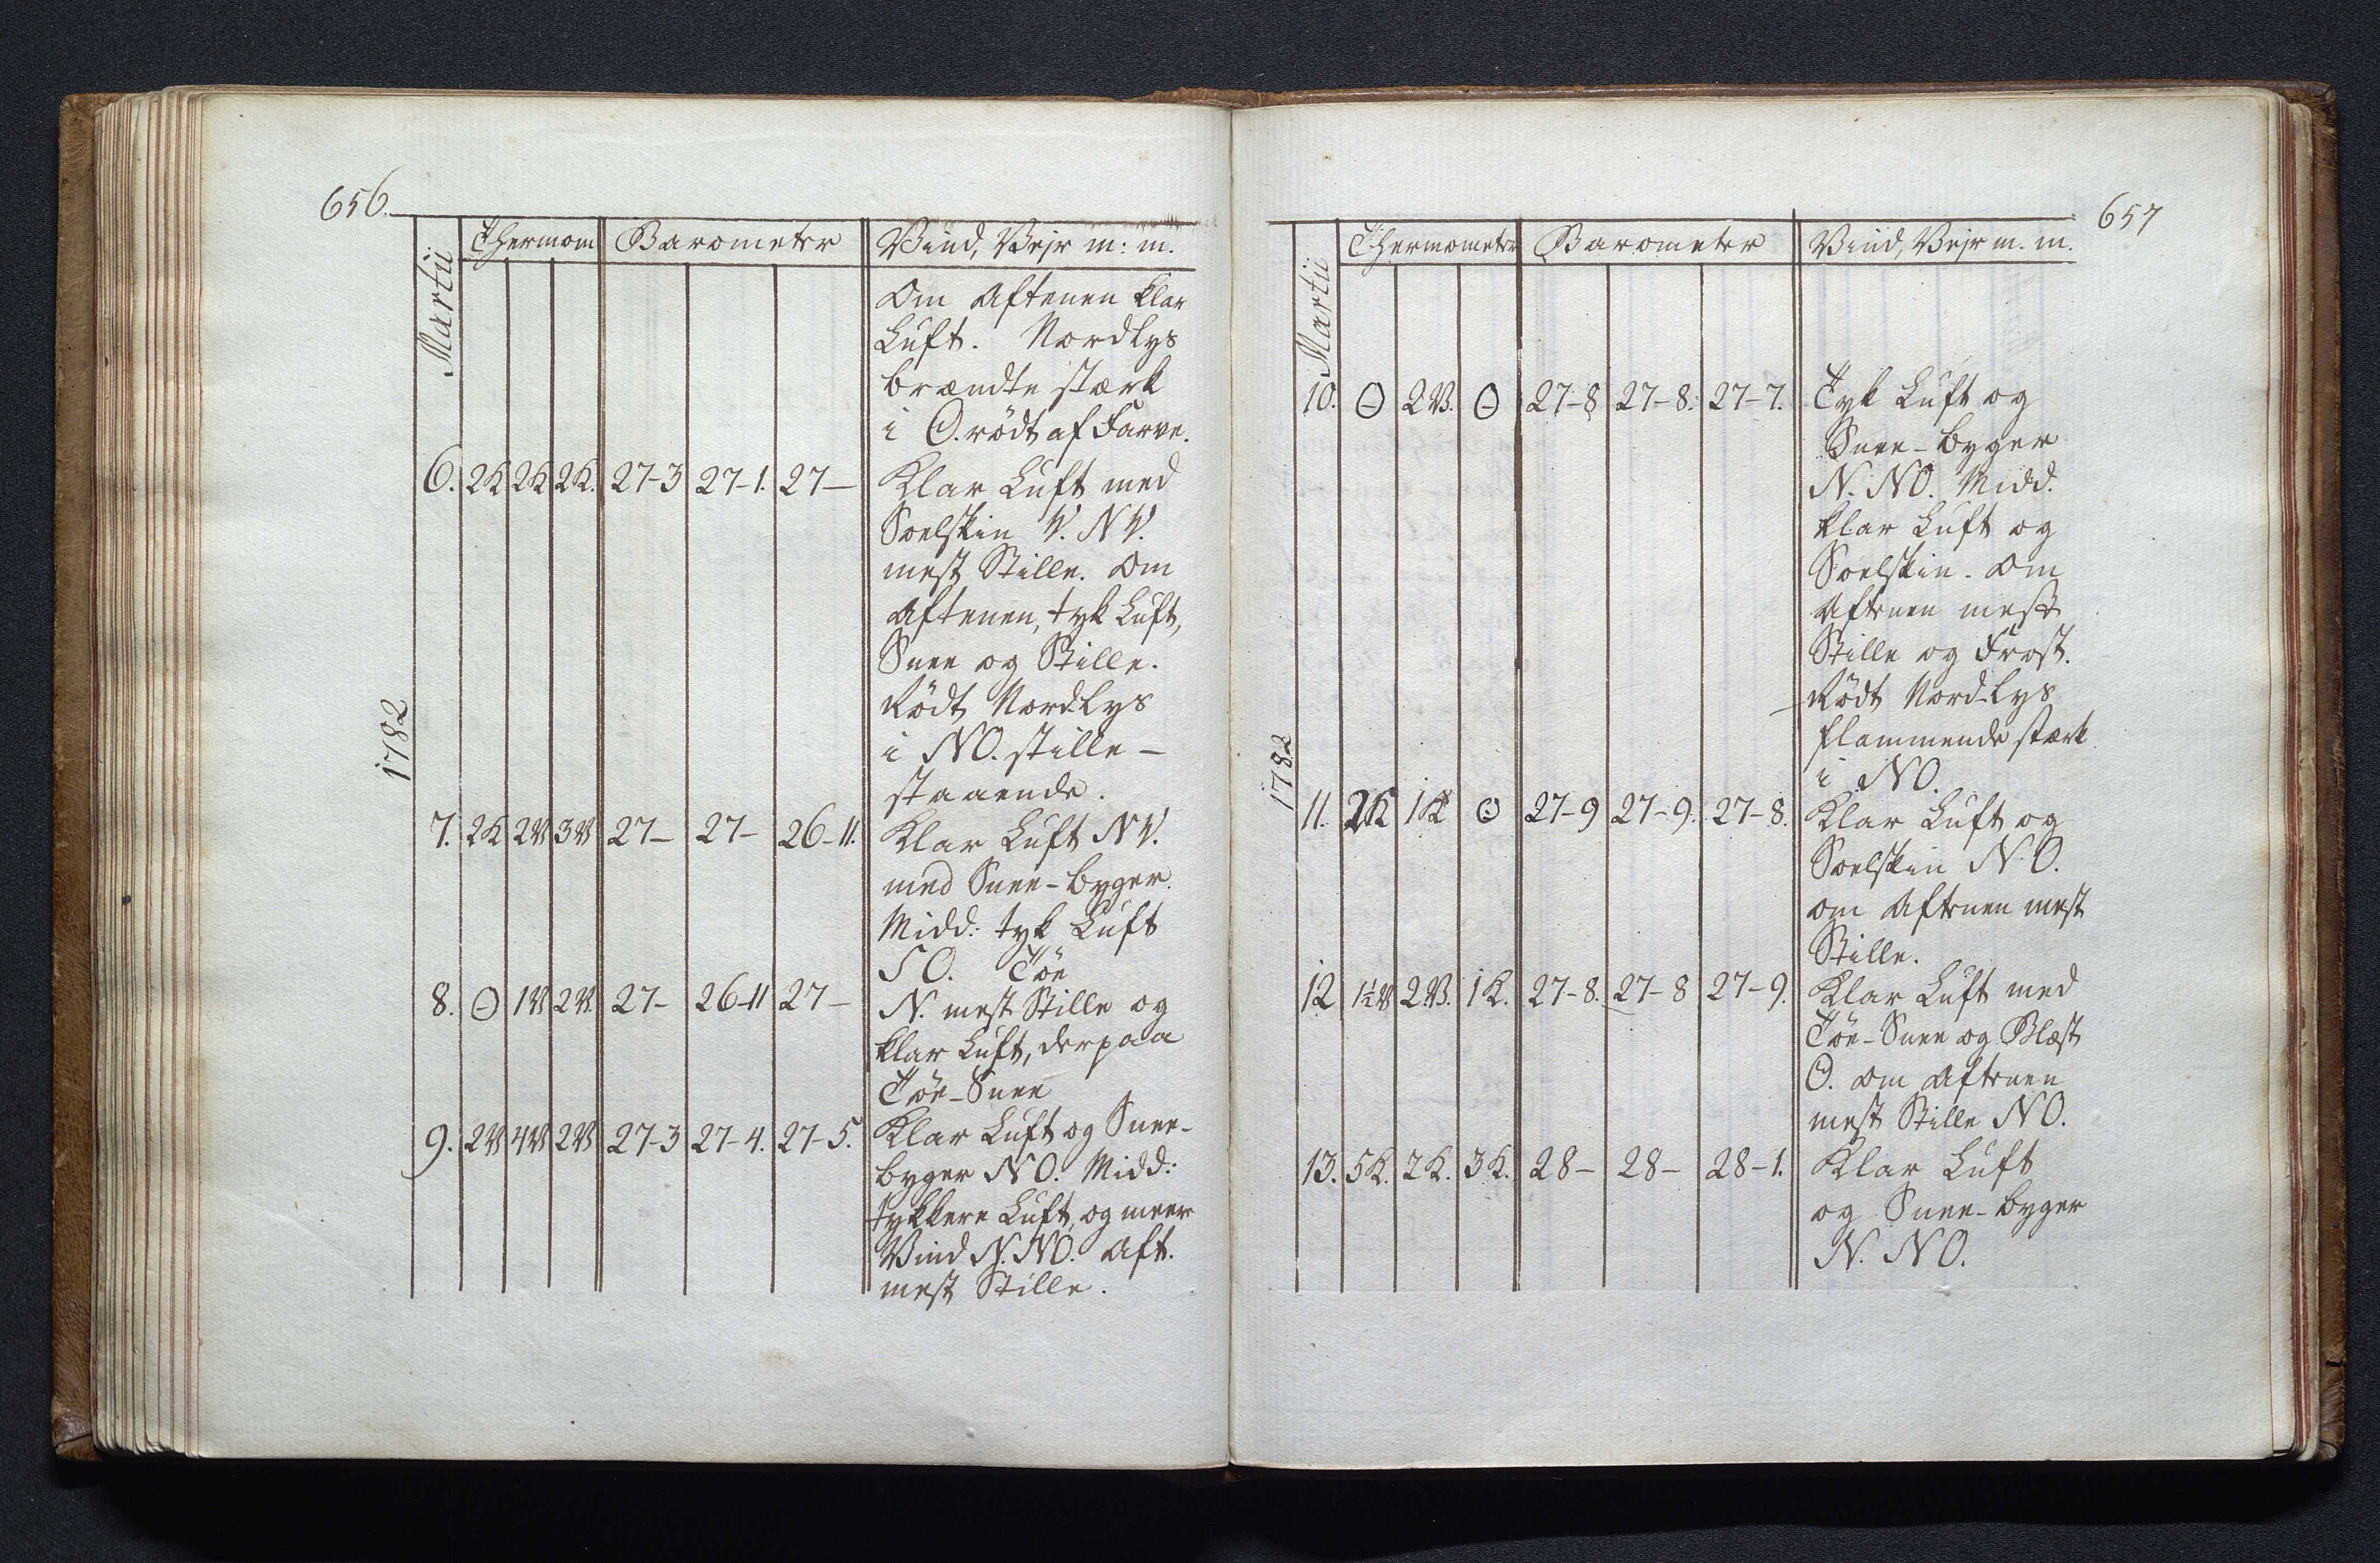 656.
Martii
Thermom Barometer Vind, Vejr m: m.
Om Aftenen klar
Luft. Nordlys
brændte stærk
i O. rödt af Farve.
6. 2K 2K 2K. 27-3 27-1. 27- Klar Luft med
Soelskin V. NV.
mest Stille. Om
Aftenen, tyk Luft,
Snee og Stille.
Rödt Nordlys
i NO. stille-
staaende.
1782
7. 2K 2V 3V 27- 27- 26-11. Klar Luft NV.
med Snee-byger.
Midd: tyk Luft
SO. Töe
8. O 1V 2V. 27- 26-11 27- N. mest Stille og
klar Luft, derpaa
Töe-Snee
9. 2V 4V 2V 27-3 27-4. 27-5. Klar Luft og Snee-
byger NO. Midd:
tykkere Luft, og meer
Vind N.NO. Aft.
mest Stille.
657
Martii
Thermometer Barometer Vind, Vejr m. m.
10. O 2V. O 27-8 27-8. 27-7. Tyk Luft og
Snee-byger
N. NO. Midd.
klar Luft og
Soelskin. Om
Aftenen mest
Stille og Frost.
Rödt Nord-lys
flammende stærk
i NO.
1782
11. 2K 1K O 27-9 27-9. 27-8. Klar Luft og
Soelskin N.O.
om Aftenen mest
Stille.
12 1½V 2V. 1K. 27-8. 27-8 27-9. Klar Luft med
Töe-Snee og Blæst
O. om Aftenen
mest Stille NO.
13. 5K. 2K. 3K. 28- 28- 28-1. Klar Luft
og Snee-byger
N. NO.